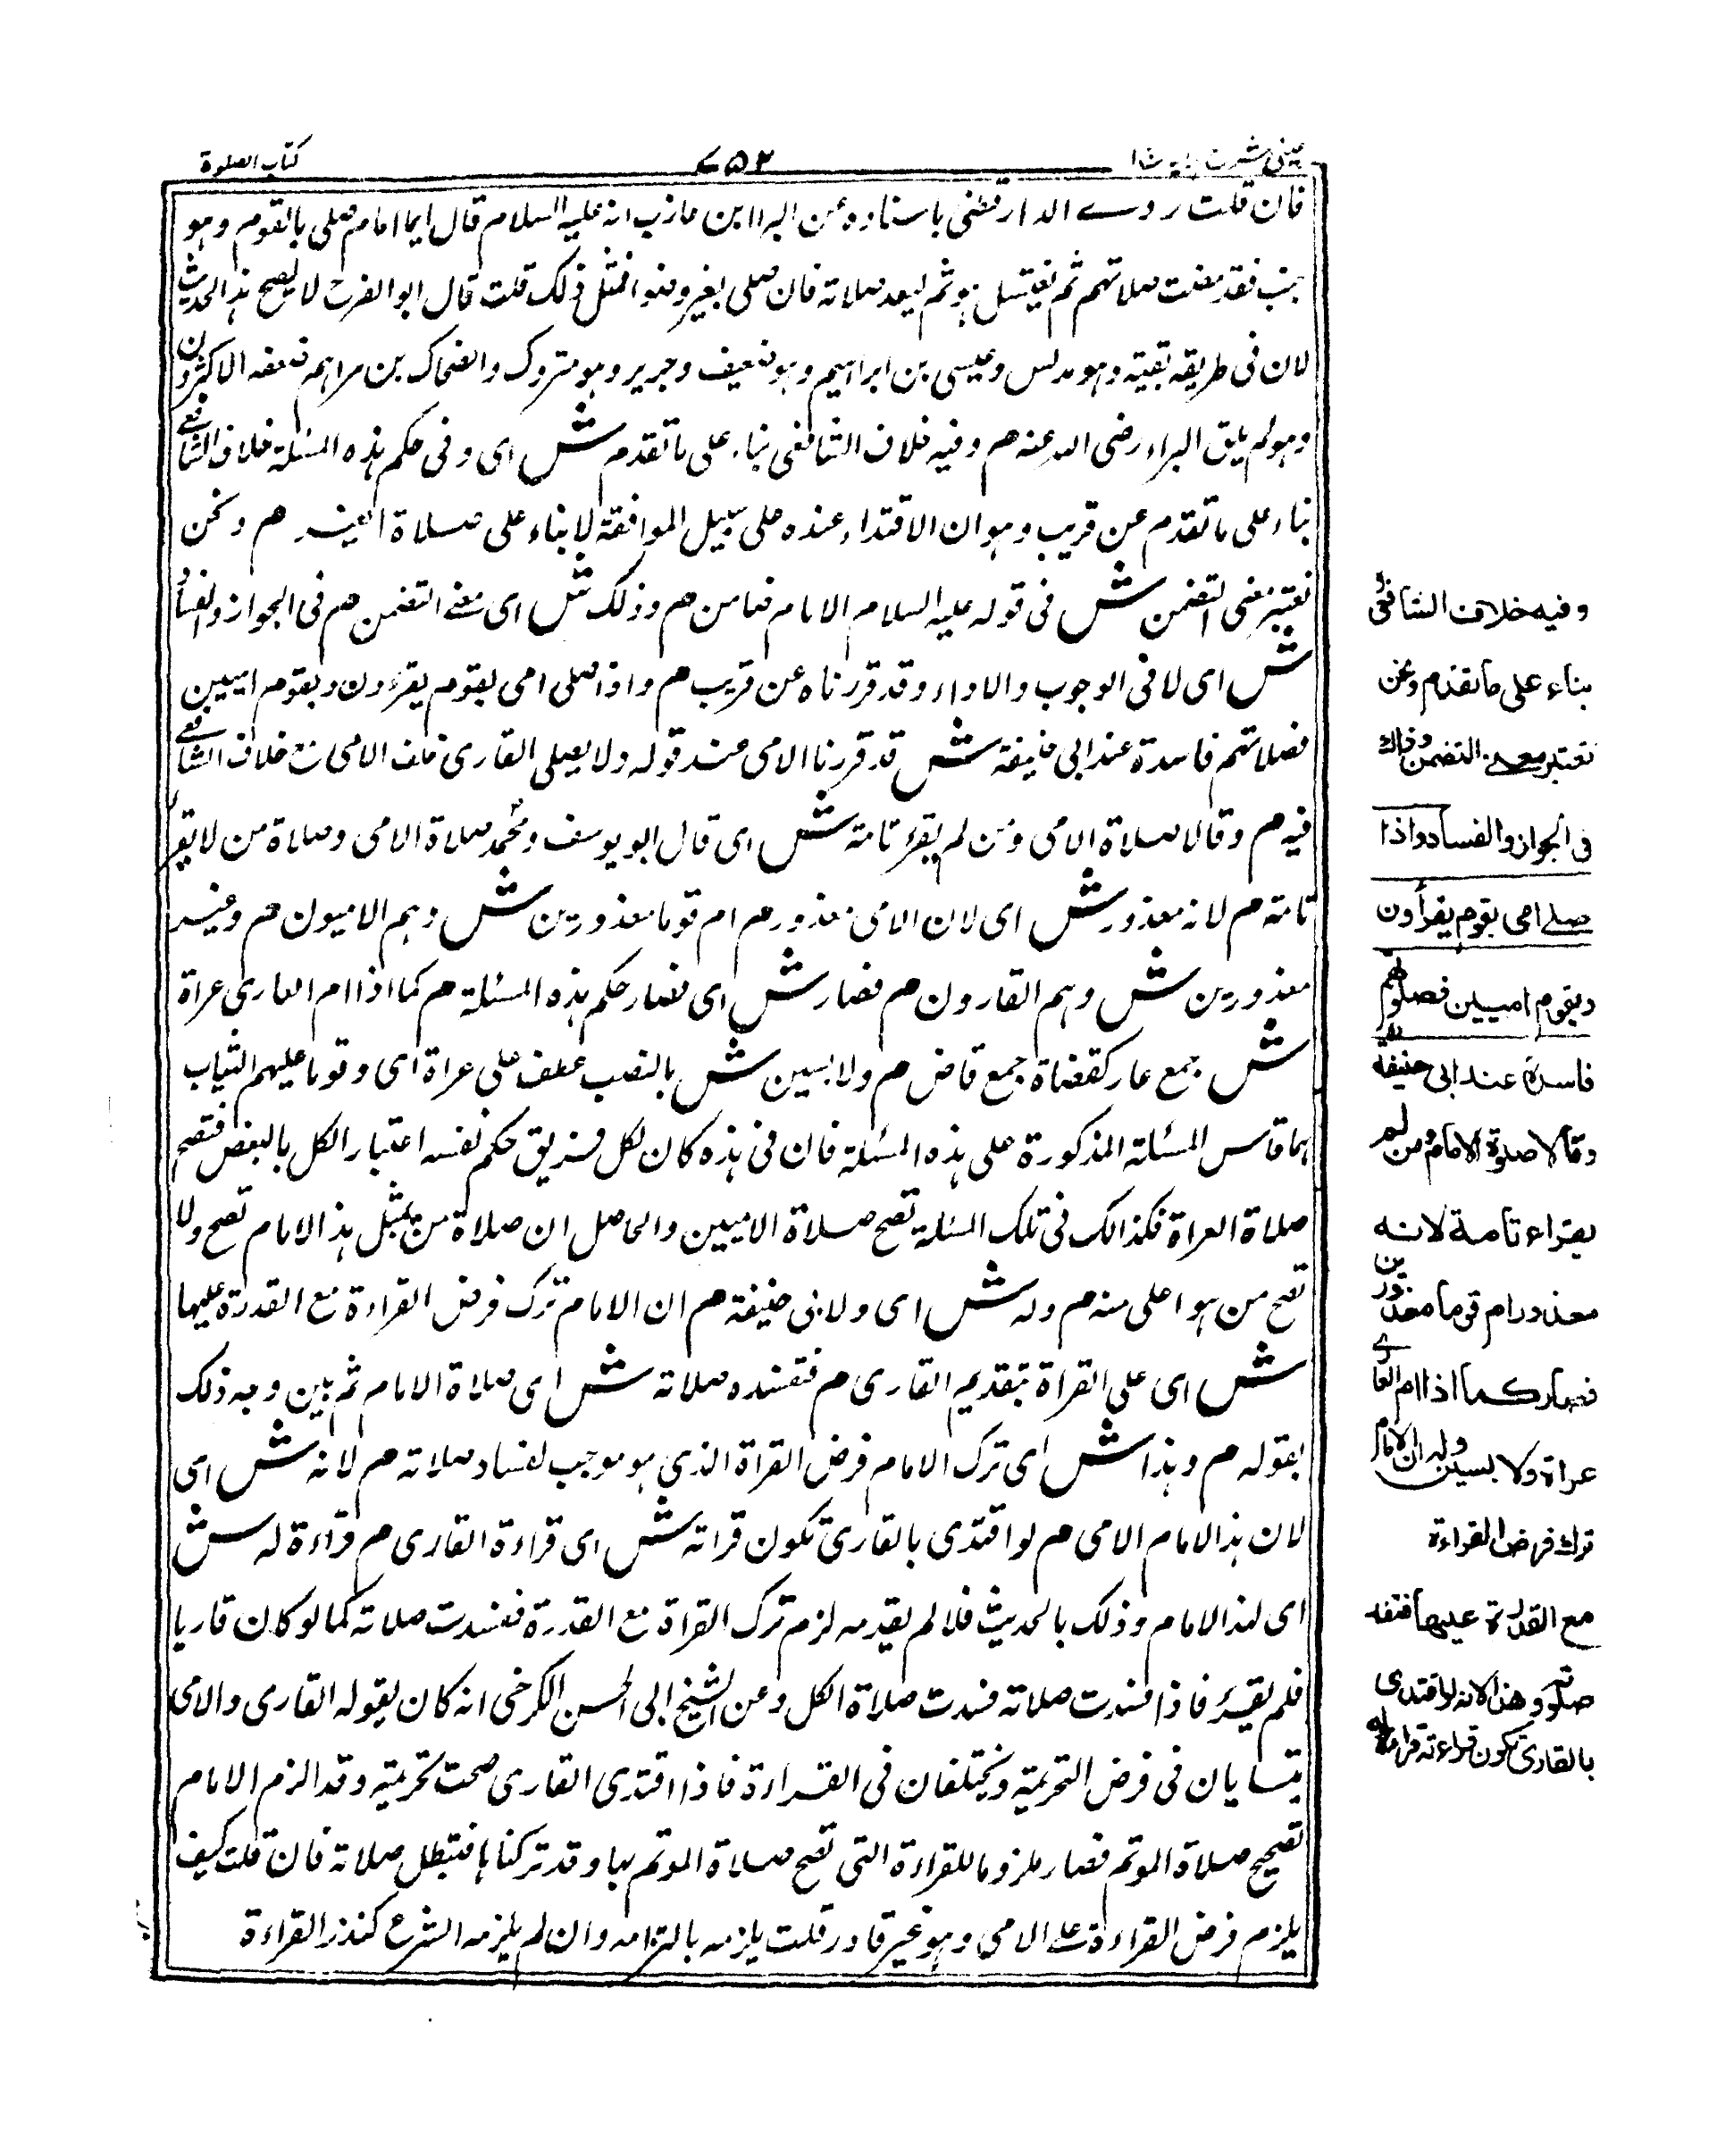 عینی شرح ہدایہ ج ۱
۷۵۲
کتاب الصلوة
فان قلت روے الدارقطنی باسناده عن البراابن عازب انه علیه السلام قال ایما امام صلی بالقوم وہو
جنب فقد مضت صلاتہم ثم لیغتسل ہو ثم لیعد صلاته فان صلی بغیر وضوء فمثل ذلک قلت قال ابو الفرج لا یصح ہذا الحدیث
لان فی طریقه بقیة وہو مدلس وعیسی بن ابراہیم وہو ضعیف وجریر وہو متروک والضحاک بن مزاہم ضعفه الاکثرون
وہو لم یلق البراء رضی الله عنه م وفیه خلاف الشافعی بناء علی ما تقدم ش ای وفی حکم ہذه المسئلة خلاف الشافعے
بناء علی ما تقدم عن قریب وہو ان الاقتداء عنده علی سبیل الموافقة لا بناء علی صلاة الغیر م ونحن
نعتبر معنی التضمن ش فی قوله علیه السلام الامام ضامن م وذلک ش ای معنے التضمن م فی الجواز والفساد
ش ای لا فی الوجوب والاداء وقد قررناه عن قریب م واذا صلی امی بقوم یقرءون وبقوم امیین
فصلاتہم فاسدة عند ابی حنیفة ش قد قررنا الامی عند قوله ولا یصلی القاری خلف الامی مع خلاف الشافعے
فیه م وقالا صلاة الامی ومن لم یقرء تامة ش ای قال ابو یوسف ومحمد صلاة الامی وصلاة من لا یقرء
تامة م لانه معذور ش ای لان الامی معذور م ام قوما معذورین ش وہم الامیون م وغیر
معذورین ش وہم القارون م فصار ش ای فصار حکم ہذه المسئلة م کما اذا ام العاری عراة
ش جمع عار کقضاة جمع قاض م ولابسین ش بالنصب عطف علی عراة ای وقوما علیہم الثیاب
ہما قاس المسئلة المذکورة علی ہذه المسئلة فان فی ہذه کان لکل فریق حکم نفسه اعتبار الکل بالبعض فتصح
صلاة العراة فکذالک فی تلک المسئلة تصح صلاة الامیین والحاصل ان صلاة من بمثل ہذا الامام تصح ولا
تصح من ہو اعلی منه م وله ش ای ولابی حنیفة م ان الامام ترک فرض القراءة مع القدرة علیہا
ش ای علی القراة بتقدیم القاری م فتفسده صلاته ش ای صلاة الامام ثم بین وجه ذلک
بقوله م وہذا ش ای ترک الامام فرض القراة الذی ہو موجب لفساد صلاته م لانه ش ای
لان ہذا الامام الامی م لو اقتدی بالقاری تکون قراته ش ای قراءة القاری م قراءة له ش
ای لہذا الامام وذلک بالحدیث فلما لم یقدمه لزم ترک القراة مع القدرة ففسدت صلاته کما لو کان قاریا
فلم یقرء فاذا فسدت صلاته فسدت صلاة الکل وعن الشیخ ابی الحسن الکرخی انه کان یقوله القاری والامی
یتسایان فی فرض التحریمة ویختلفان فی القراءة فاذا اقتدی القاری صحت تحریمته وقد الزم الامام
تصحیح صلاة الموتم فصار ملزوما للقراءة التی تصح صلاة الموتم بہا وقد ترکناہا فتبطل صلاته فان قلت کیف
یلزم فرض القراءة علے الامی وہو غیر قادر قلت یلزمه بالتزامه وان لم یلزمه الشرع کنذر القراءة
وفيه خلاف الشافعي
بناء على ما تقدم ونحن
نعتبر معنى التضمن وذلك
في الجواز والفساد واذا
صلے امی بقوم يقرأون
وبقوم اميين فصلوتهم
فاسدة عند ابی حنيفة
وقالا صلوة الامام ومن لم
يقراء تامة لانه
معذور ام قوما معذورين
فصار كما اذا ام العاري
عراة ولابسين وله ان الامام
ترك فرض القراءة
مع القدرة عليها فتفسد
صلوته وهذا لانه لو اقتدى
بالقاري تكون قراءته قراءة له